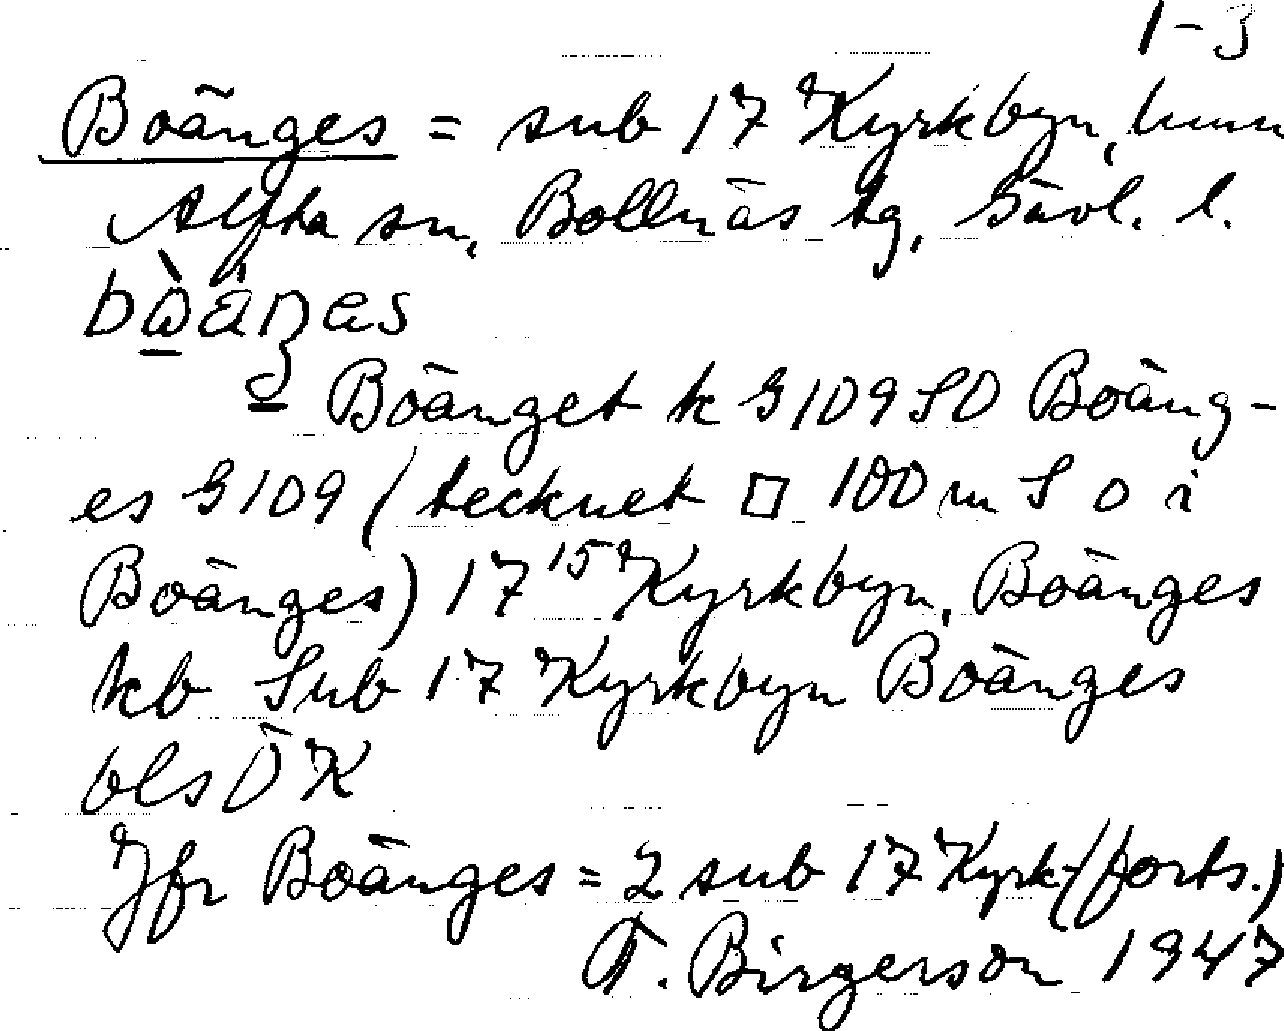 1-3
Boänges = sub 17 Kyrkbyn, hmn
Alfta sn, Bollnäs tg, Gävl. l.
Boänget k G109 SO Boäng-
es G109 (tecknet □ 100 m S o i
Boänges) 17¹⁵ Kyrkbyn, Boänges
kb Sub 17 Kyrkbyn Boänges
bls ÖK
Jfr Boänges = 2 sub 17 Kyrk-(forts.)
F. Birgerson 1947